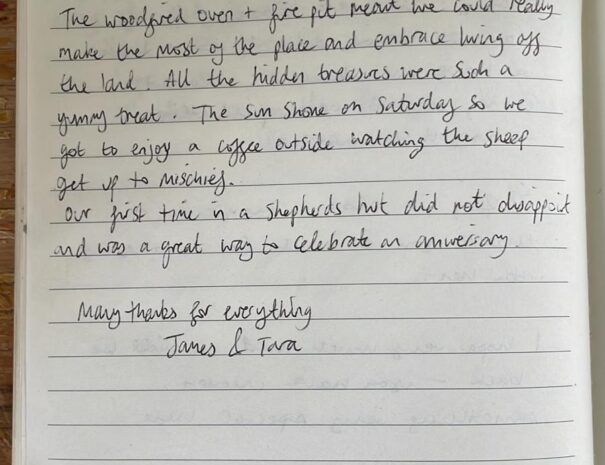 The woodfired oven + fire pit meant we could really
make the most of the place and embrace living off
the land. All the hidden treasures were such a
yummy treat. The sun shone on Saturday so we
got to enjoy a coffee outside watching the sheep
get up to mischief.
Our first time in a shepherds hut did not disappoint
and was a great way to celebrate an anniversary.
Many thanks for everything
James & Tara